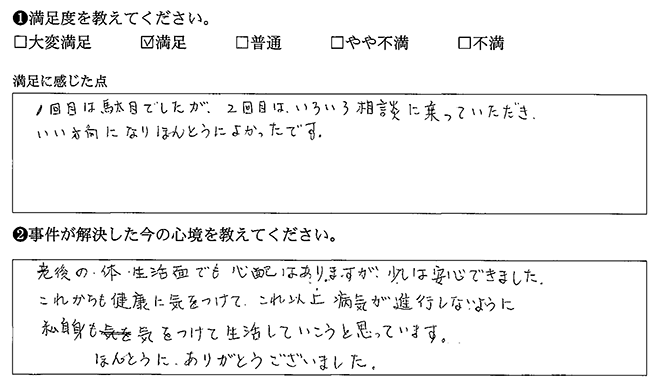 ❶満足度を教えてください。
□大変満足 ☑満足 □普通 □やや不満 □不満
満足に感じた点
1回目は駄目でしたが、2回目は、いろいろ相談に乗っていただき、
いい方向になりほんとうによかったです。
❷事件が解決した今の心境を教えてください。
老後の・体・生活面でも心配はありますが、少しは安心できました。
これからも健康に気をつけて、これ以上病気が進行しないように
私自身も気を気をつけて生活していこうと思っています。
ほんとうに、ありがとうございました。